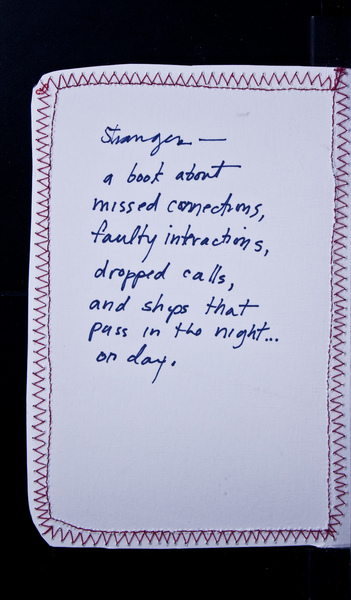 Stranger —
a book about
missed connections,
faulty interactions,
dropped calls,
and ships that
pass in the night...
or day.